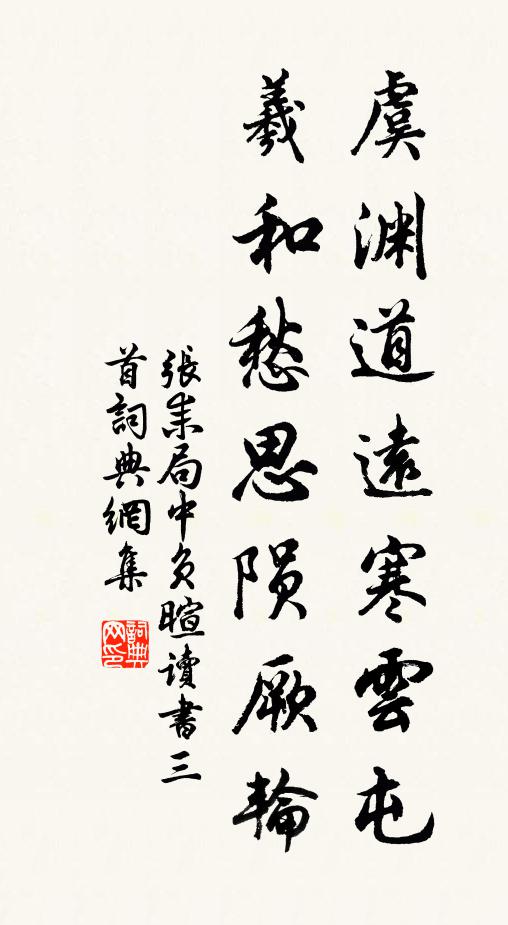 虞渊道遠寒雲屯
羲和愁思陨厥輪
張耒局中負暄讀書三
首詞典網集
詞典网印